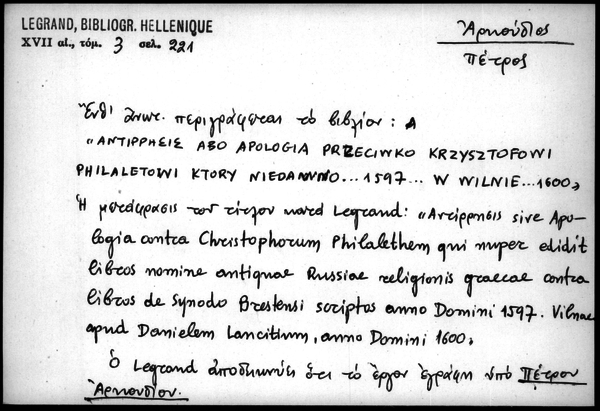 LEGRAND, BIBLIOGR. HELLENIQUE
XVII αἰ., τόμ. 3 σελ. 221
Ἀρκούδιος
πέτρος
Ἔνθ' ἀνωτ. περιγράφεται τὸ βιβλίον:
"ΑΝΤΙΡΡΗΣΙΣ ABO APOLOGIA PRZECIWKO KRZYSZTOFOWI
PHILALETOWI KTORY NIEDAWNO... 1597... W WILNIE... 1600„
Ἡ μετάφρασις τοῦ τίτλου κατὰ Legrand: "Αντίρρησις sive Apo-
logia contra Christophorum Philalethem qui nuper edidit
libros nomine antiquae Russiae religionis graecae contra
libros de Synodo Brestensi scriptos anno Domini 1597. Vilnae
apud Danielem Lancitium, anno Domini 1600„
Ὁ Legrand ἀποδεικνύει ὅτι τὸ ἔργον ἐγράφη ὑπὸ Πέτρου
Ἀρκουδίου.